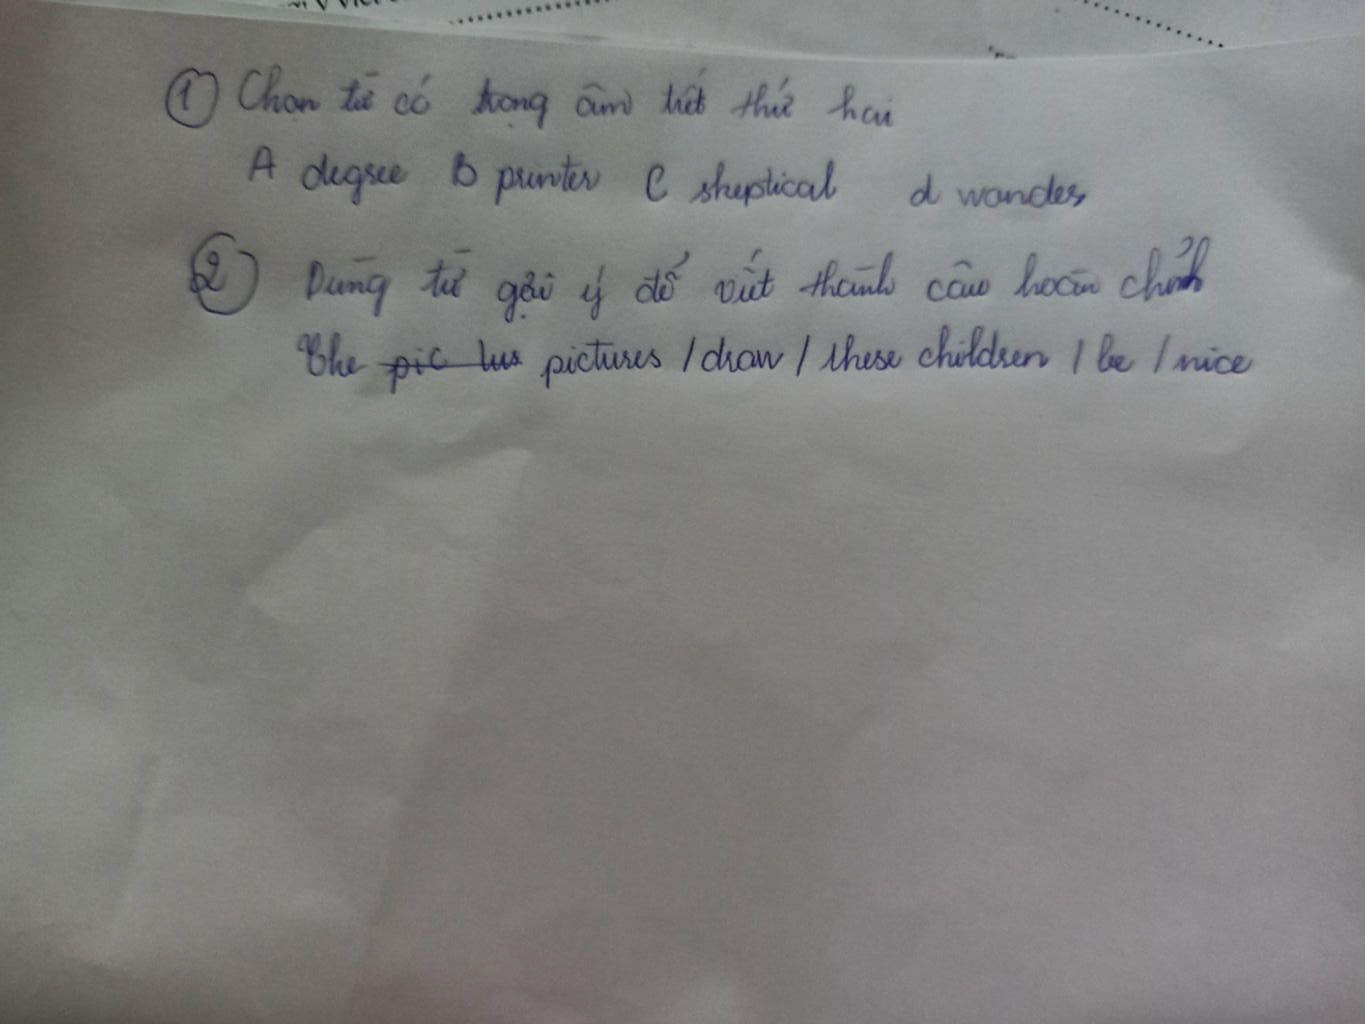 ① Chọn từ có trọng âm tiết thứ hai
A degree B printer C skeptical d wander
② Dùng từ gợi ý để viết thành câu hoàn chỉnh
The pictures / draw / these children / be / nice